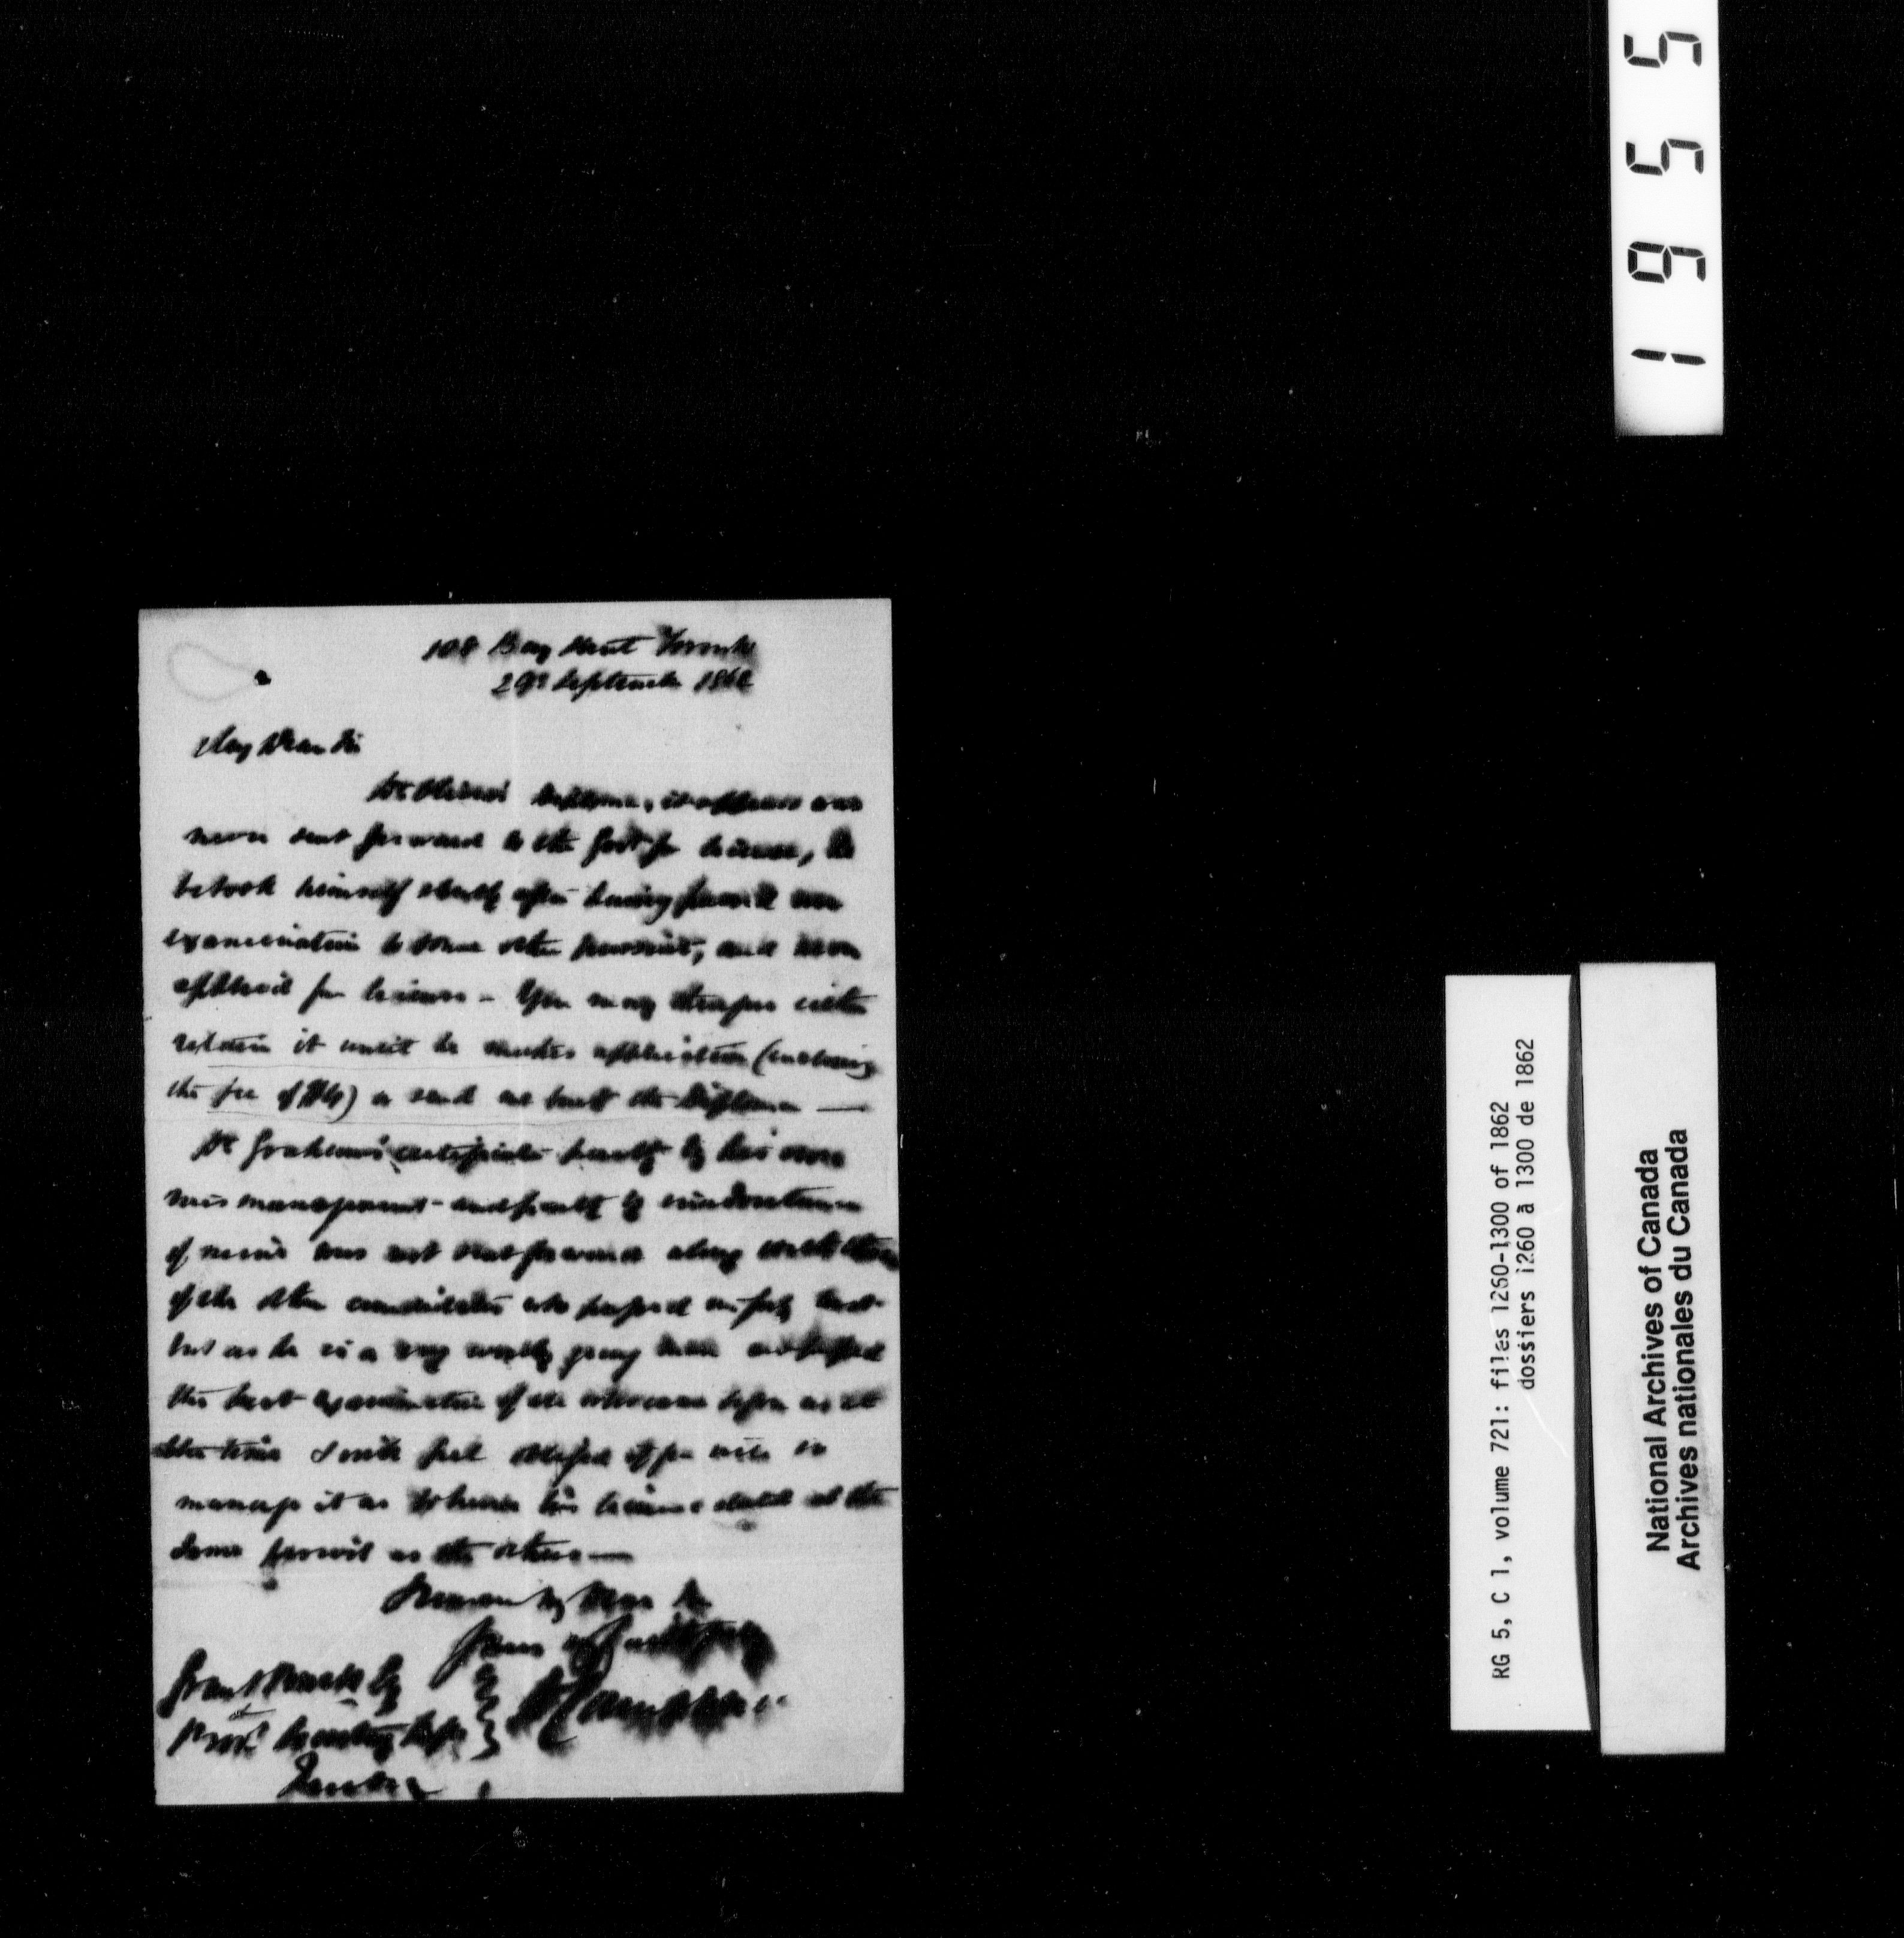 108 Bay Street Toronto
29th September 1862
My Dear Sir
diploma, it appears was
never sent forward to the for license, he
betook himself shortly after having passed our
examination to some other pursuit, and never
applied for license - You may therefore either
retain it until he makes application (enclosing
the fee of $4) or send me back the Diploma —
Dr Graham's certificate partly by his own
mismanagement - and partly by
of mine was not sent forward along with those
of the other candidates who passed in July last
but as he is a very worthy young man and passed
the best examination of all who came before us at
that time I will feel obliged if you will so
manage it as to have his license dated at the
same period as the others —
Remain my Dear Sir
Yours very faithfully
Grant Powell Esq
Provl Secretary's Dept
Quebec
1955
RG 5, C 1, volume 721: files 1260-1300 of 1862
dossiers 1260 à 1300 de 1862
National Archives of Canada
Archives nationales du Canada